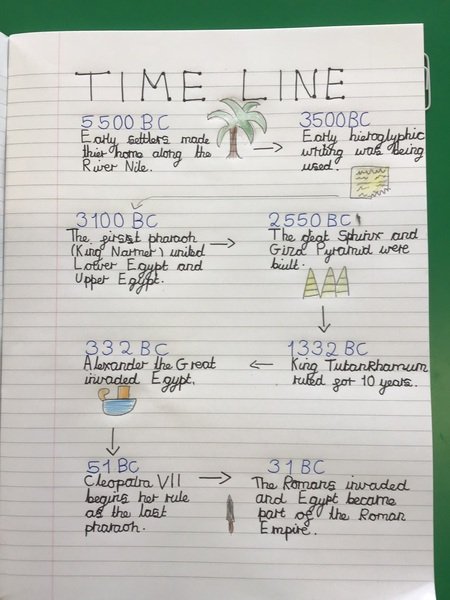 TIME LINE
5500 BC
Early settlers made
thier home along the
River Nile.
3500BC
Early hieroglyphic
writing was being
used.
3100 BC
The firsst pharaoh
(King Narmer) united
Lower Egypt and
Upper Egypt.
2550 BC
The Geat Sphinx and
Giza Pyramid were
built.
1332 BC
King Tutankhamum
ruled for 10 years.
332 BC
Alexander the Great
invaded Egypt.
51 BC
Cleopatra VII
begins her rule
as the last
pharaoh.
31 BC
The Romans invaded
and Egypt became
part of the Roman
Empire.